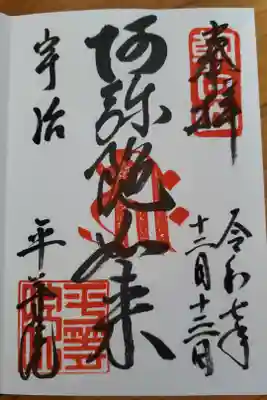 奉拝
令和七年
十二月十三日
阿弥陀如来
宇治
平等院